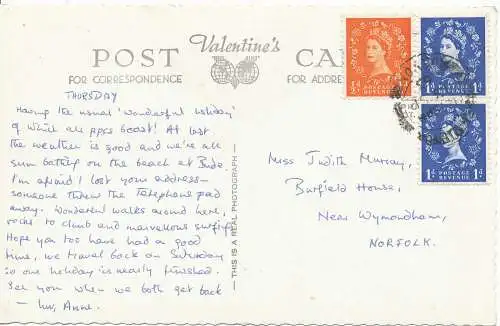 POST Valentine's CA
FOR CORRESPONDENCE FOR ADDRE
THURSDAY
Having the usual 'wonderful holiday'
of which all ppcs boast! At last
the weather is good and we're all
sun bathing on the beach at Bude
I'm afraid I lost your address –
someone threw the telephone pad
away. Wonderful walks around here,
rocks to climb and marvellous surfing
Hope you too have had a good
time, we travel back on Saturday
so one holiday is nearly finished.
See you when we both get back
– luv, Anne.
— THIS IS A REAL PHOTOGRAPH —
Miss Judith Murray,
Burfield House,
Near Wymondham,
NORFOLK.
½d POSTAGE REVENUE
1d POSTAGE REVENUE 1d
1d POSTAGE REVENUE 1d